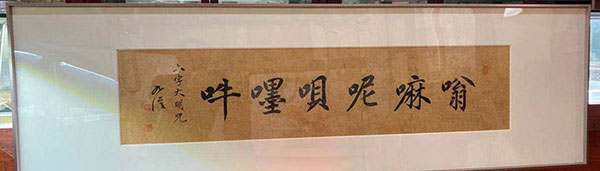 嗡嘛呢唄嘿吽
六字大明咒